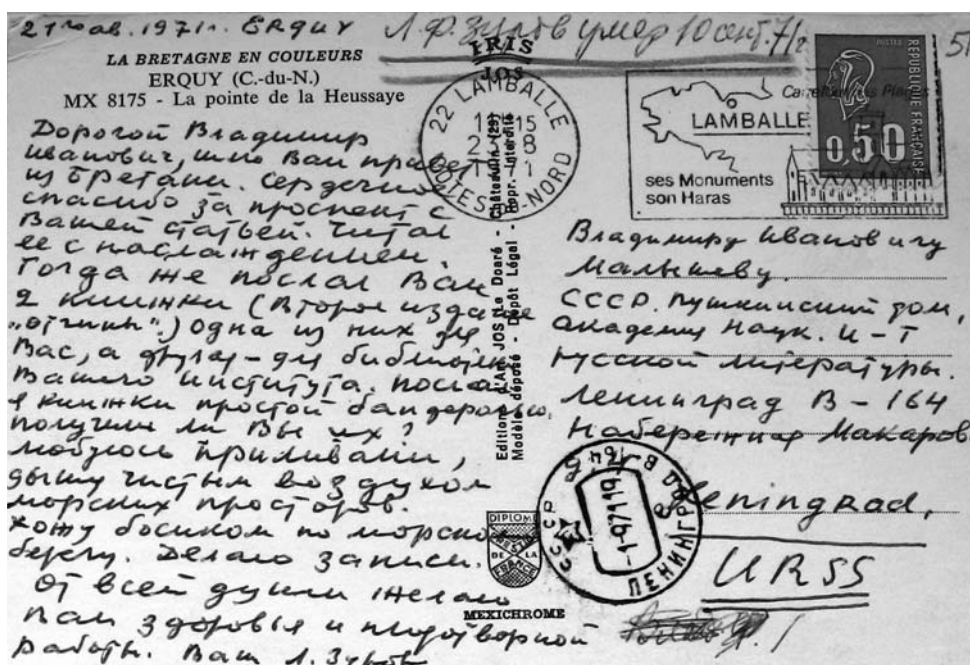 21 Erquy
Л.Ф. Зуров умер 10 сент. 71 г.
LA BRETAGNE EN COULEURS
ERQUY (C.-du-N.)
MX 8175 - La pointe de la Heussaye
IRIS
JOS
22 LAMBALLE
COTES-DU-NORD
Carrefour des Plages
LAMBALLE
ses Monuments
son Haras
POSTES
REPUBLIQUE FRANÇAISE
0,50
Дорогой Владимир
Иванович, шлю Вам привет
из Бретани. Сердечное
спасибо за проспект с
Вашей статьей. Читал
ее с наслаждением.
Тогда же послал Вам
2 книжки (второе издание
„Отчины“.) одна из них для
Вас, а другая – для библиотеки
Вашего Института. Послал
я книжки простой бандеролью.
Получили ли Вы их?
Любуюсь приливами,
дышу чистым воздухом
морских просторов.
Хожу босиком по морскому
берегу. Делаю записи.
От всей души желаю
Вам здоровья и плодотворной
работы. Ваш Л. Зуров
Editions d'Art JOS Le Doaré - Châteaulin (29)
Modèle déposé - Dépôt Légal - Repr. Interdite
Владимиру Ивановичу
Малышеву.
СССР. Пушкинский дом,
Академия Наук. И-т
Русской литературы.
Ленинград В-164
Набережная Макарова
Leningrad,
URSS
ЛЕНИНГРАД В-164
СССР
DIPLOME
DE LA
FRANCE
MEXICHROME